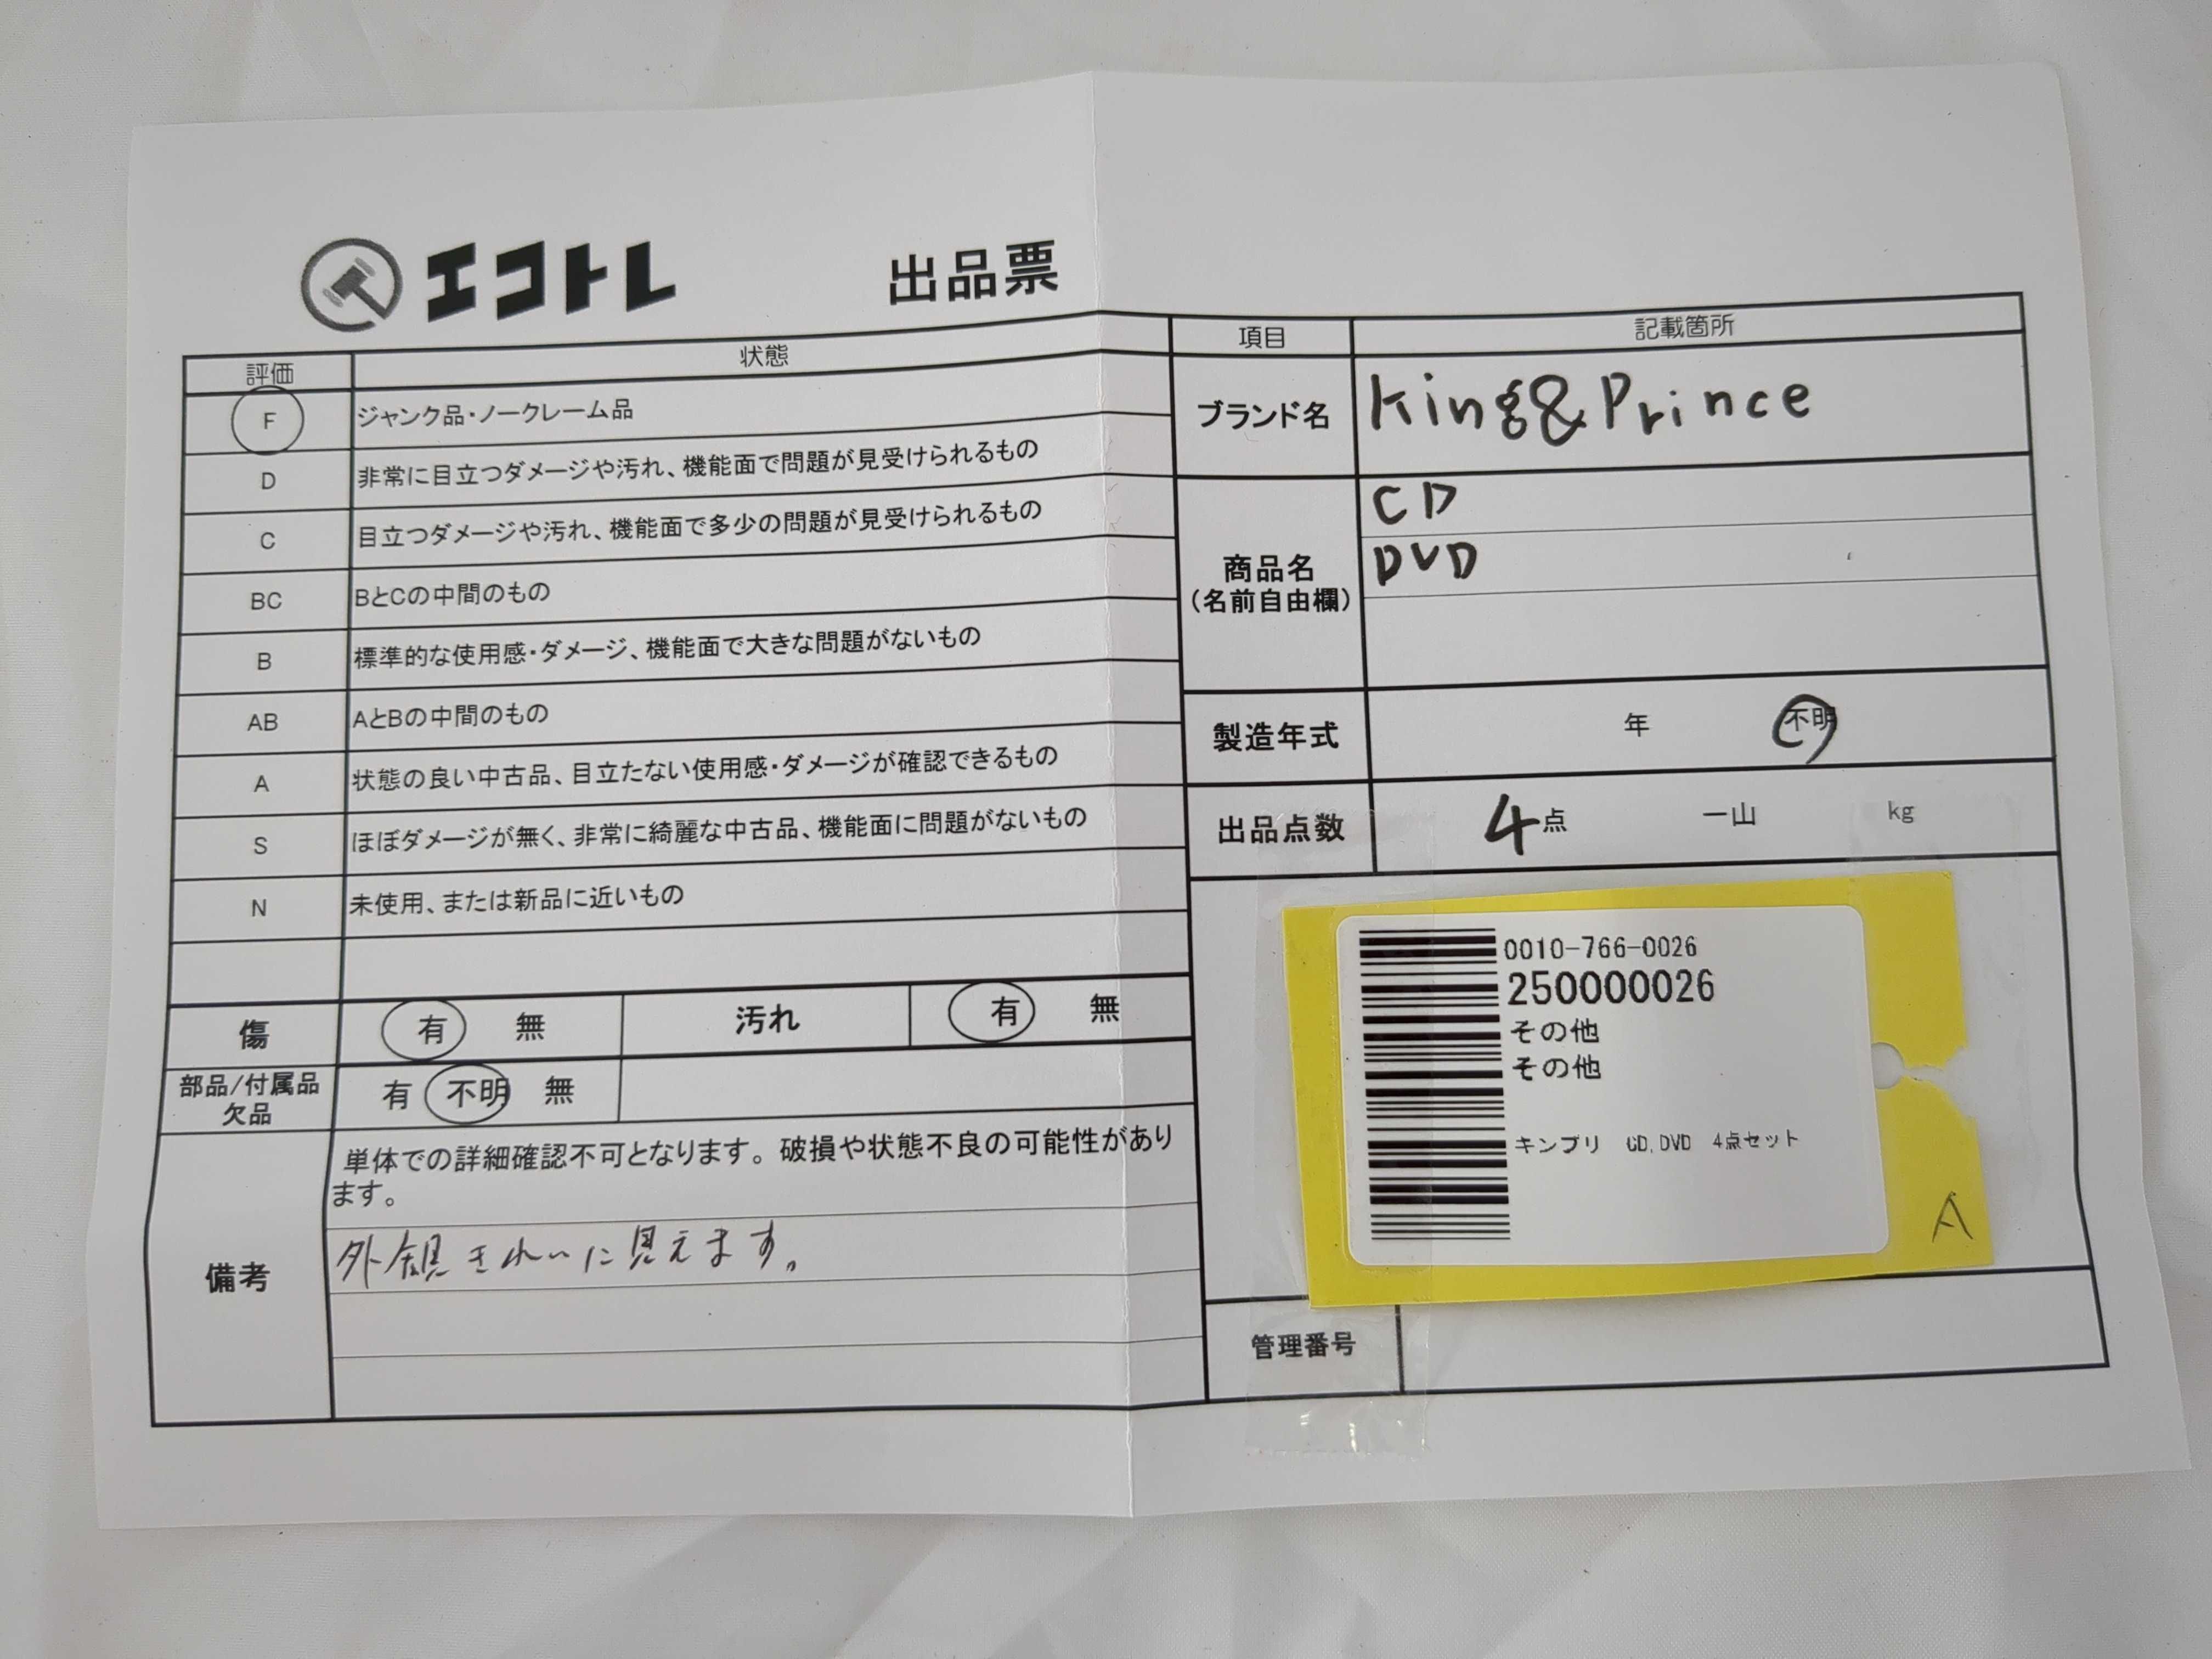 エコトレ 出品票
評価 状態
F ジャンク品・ノークレーム品
D 非常に目立つダメージや汚れ、機能面で問題が見受けられるもの
C 目立つダメージや汚れ、機能面で多少の問題が見受けられるもの
BC BとCの中間のもの
B 標準的な使用感・ダメージ、機能面で大きな問題がないもの
AB AとBの中間のもの
A 状態の良い中古品、目立たない使用感・ダメージが確認できるもの
S ほぼダメージが無く、非常に綺麗な中古品、機能面に問題がないもの
N 未使用、または新品に近いもの
傷 有 無 汚れ 有 無
部品/付属品
欠品 有 不明 無
備考
単体での詳細確認不可となります。破損や状態不良の可能性があり
ます。
外観きれいに見えます。
項目 記載箇所
ブランド名 King&Prince
商品名
(名前自由欄)
CD
DVD
製造年式 年 不明
出品点数 4点 一山 kg
0010-766-0026
250000026
その他
その他
キンプリ CD,DVD 4点セット
A
管理番号